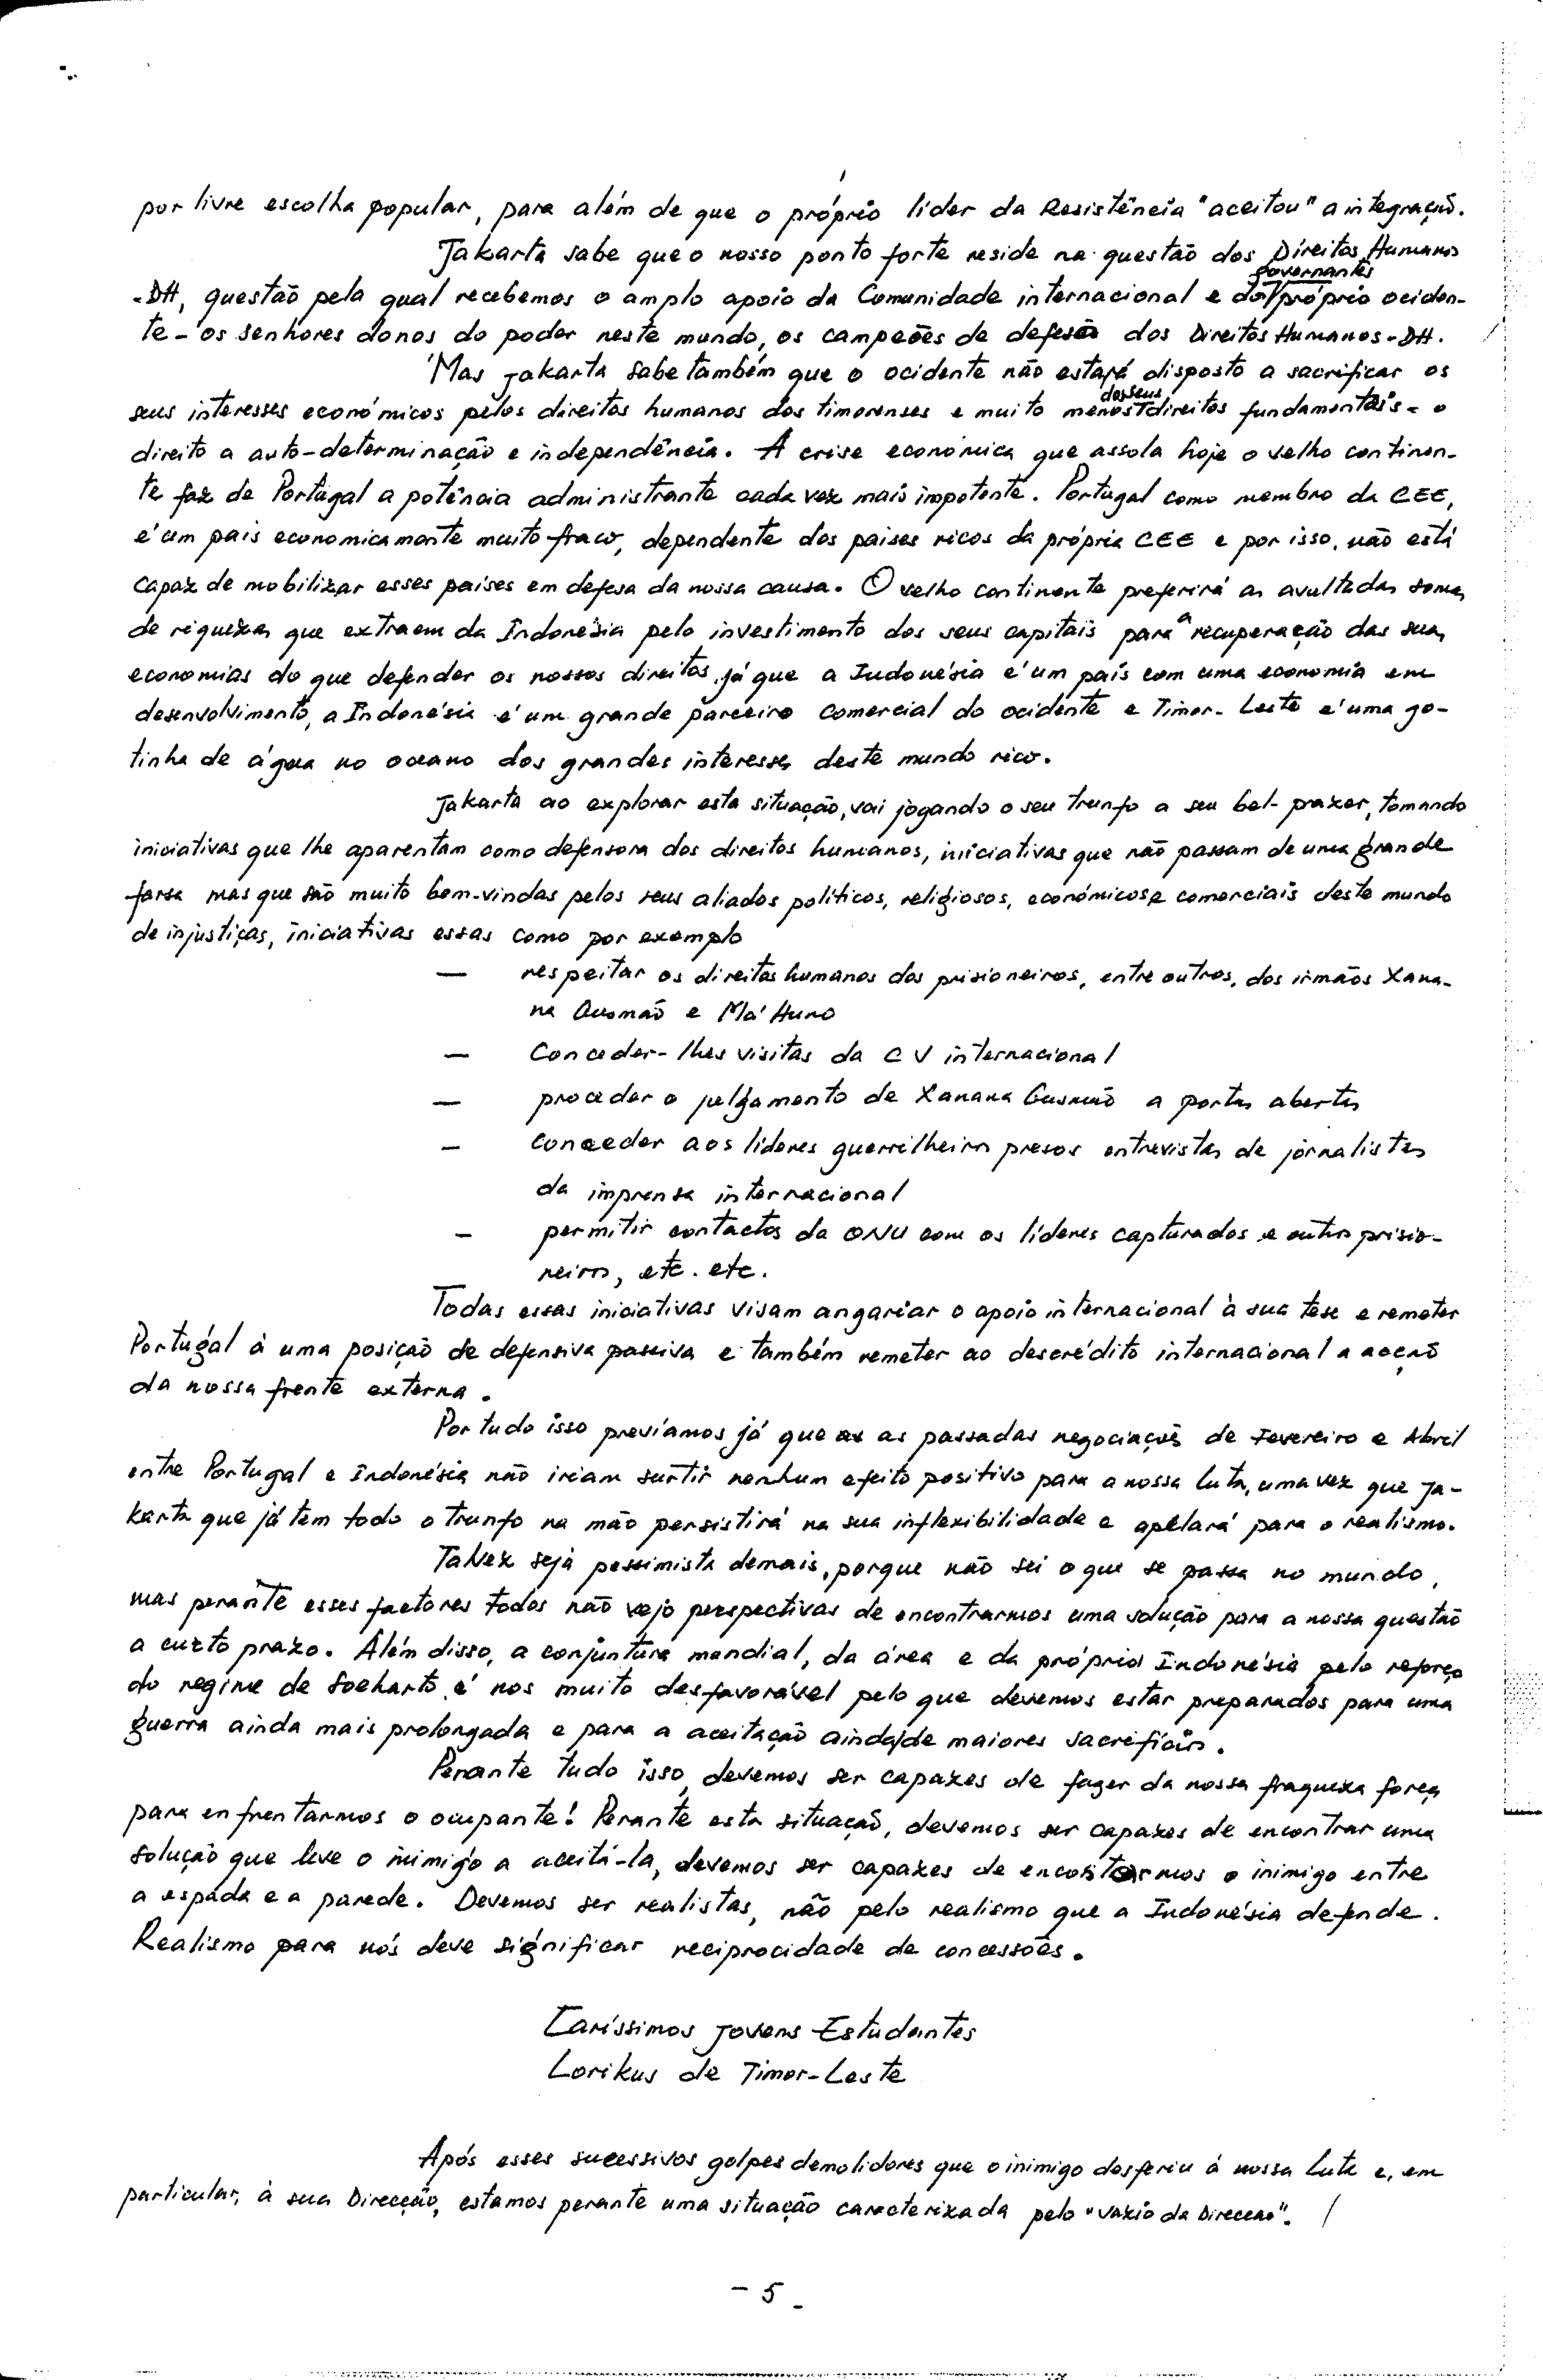 por livre escolha popular, para além de que o próprio líder da Resistência "aceitou" a integração.
Jakarta sabe que o nosso ponto forte reside na questão dos Direitos Humanos
-DH, questão pela qual recebemos o amplo apoio da Comunidade internacional e dos governantes próprio ociden-
te - os senhores donos do poder neste mundo, os campeões de defesa dos Direitos Humanos - DH.
Mas Jakarta sabe também que o ocidente não estará disposto a sacrificar os
seus interesses económicos pelos direitos humanos dos timorenses e muito menos dos seus direitos fundamentais - o
direito a auto-determinação e independência. A crise económica que assola hoje o velho continen-
te faz de Portugal a potência administrante cada vez mais impotente. Portugal como membro da CEE,
é um pais economicamente muito fraco, dependente dos paises ricos da própria CEE e por isso, não está
capaz de mobilizar esses países em defesa da nossa causa. O velho continente preferirá as avultadas somas
de riquezas que extraem da Indonésia pelo investimento dos seus capitais para a recuperação das suas
economias do que defender os nossos direitos, já que a Indonésia é um país com uma economia em
desenvolvimento, a Indonésia é um grande parceiro comercial do ocidente e Timor-Leste é uma go-
tinha de água no oceano dos grandes interesses deste mundo rico.
Jakarta ao explorar esta situação, vai jogando o seu trunfo a seu bel-prazer, tomando
iniciativas que lhe aparentam como defensora dos direitos humanos, iniciativas que não passam de uma grande
farsa mas que são muito bem-vindas pelos seus aliados políticos, religiosos, económicos e comerciais deste mundo
de injustiças, iniciativas essas como por exemplo
— respeitar os direitos humanos dos prisioneiros, entre outros, dos irmãos Xana-
na Gusmão e Má Huno
— Conceder-lhes visitas da CV internacional
— proceder o julgamento de Xanana Gusmão a portas abertas
— conceder aos líderes guerrilheiros presos entrevistas de jornalistas
da imprensa internacional
— permitir contactos da ONU com os líderes capturados e outros prisio-
neiros, etc. etc.
Todas essas iniciativas visam angariar o apoio internacional à sua tese e remeter
Portugal à uma posição de defensiva passiva e também remeter ao descrédito internacional a acção
da nossa frente externa.
Por tudo isso previamos já que as passadas negociações de Fevereiro e Abril
entre Portugal e Indonésia não iriam surtir nenhum efeito positivo para a nossa luta, uma vez que Ja-
karta que já tem todo o trunfo na mão persistirá na sua inflexibilidade e apelará para o realismo.
Talvez seja pessimista demais, porque não sei o que se passa no mundo,
mas perante esses factores todos não vejo perspectivas de encontrarmos uma solução para a nossa questão
a curto prazo. Além disso, a conjuntura mundial, da área e da própria Indonésia pelo reforço
do regime de Soeharto, é nos muito desfavorável pelo que devemos estar preparados para uma
guerra ainda mais prolongada e para a aceitação ainda de maiores sacrifícios.
Perante tudo isso, devemos ser capazes de fazer da nossa fraqueza força
para enfrentarmos o ocupante! Perante esta situação, devemos ser capazes de encontrar uma
solução que leve o inimigo a aceitá-la, devemos ser capazes de encostarmos o inimigo entre
a espada e a parede. Devemos ser realistas, não pelo realismo que a Indonésia defende.
Realismo para nós deve significar reciprocidade de concessões.
Caríssimos Jovens Estudantes
Lorikus de Timor-Leste
Após esses sucessivos golpes demolidores que o inimigo desferiu à nossa luta e, em
particular, à sua Direcção, estamos perante uma situação caracterizada pelo "vazio da Direccao". /
- 5 -